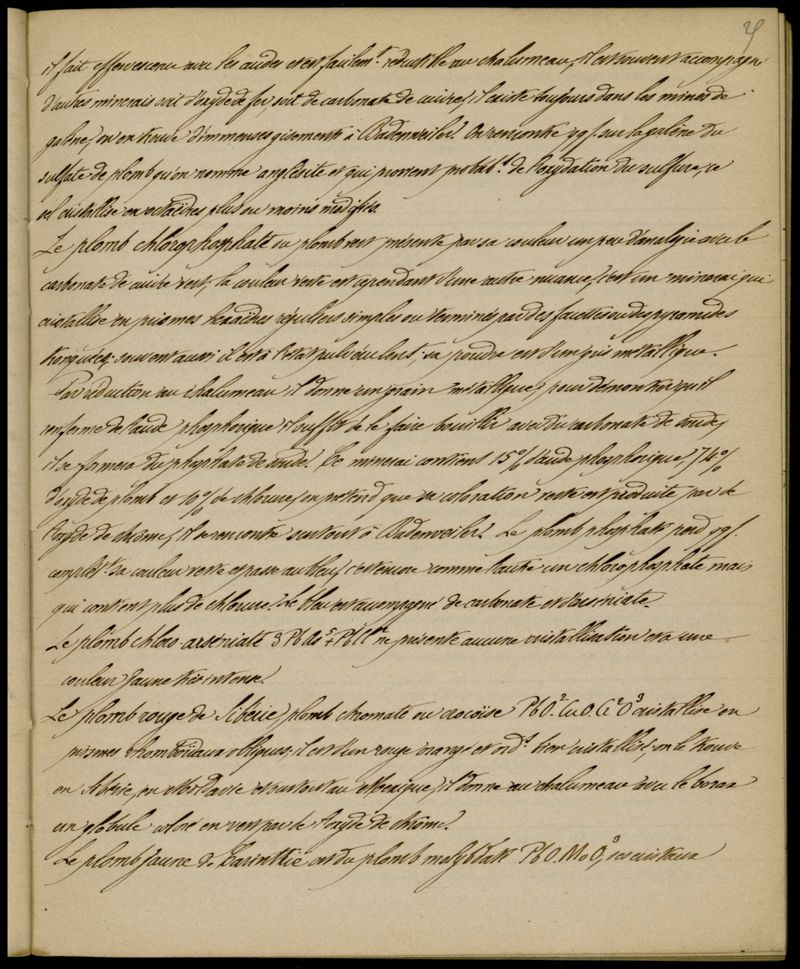 il fait effervescence avec les acides et est facilemt. réductible au chalumeau, il est souvent accompagné
d'autres minerais soit d'oxyde de fer, soit de carbonate de cuivre, il existe toujours dans les mines de
galène, on en trouve d'immenses gisements à Badenweiler. On rencontre qqf. sur la galène du
sulfate de plomb qu'on nomme anglésite et qui provient probabt. de l'oxydation du sulfure, ce
sel cristallise en octaèdres plus ou moins modifiés.
Le plomb chlorophosphaté ou plomb vert présente par sa couleur un peu d'analogie avec le
carbonate de cuivre vert, la couleur verte est cependant d'une autre nuance, c'est un minerai qui
cristallise en prismes hexaèdres réguliers simples ou terminés par des facettes ou des pyramides
tronquées, souvent aussi il est à l'état pulvérulent, sa poudre est d'un gris métallique.
Par réduction au chalumeau il donne un grain métallique, pour démontrer qu'il
renferme de l'acide phosphorique il suffit de le faire bouillir avec du carbonate de soude,
il se formera du phosphate de soude. Ce minerai contient 15% d'acide phosphorique, 74%
d'oxyde de plomb et 10% de chlorure, on prétend que sa coloration verte est produite par de
l'oxyde de chrôme, il se rencontre surtout à Badenweiler. Le plomb phosphaté perd qqf.
complètt. sa couleur verte et passe au bleu, c'est encore comme l'autre un chlorophosphate mais
qui contient plus de chlorure. Le bleu est accompagné de carbonate et d'arséniate.
Le plomb chloro-arséniaté 3 Pb As⁵ + Pb Cl ne présente aucune cristallisation et a une
couleur jaune très intense.
Le plomb rouge de Sibérie, plomb chromaté ou crocoïse PbO.² CuO. Cr²O³ cristallise en
prismes rhomboïdaux obliques, il est d'un rouge orangé et ordt. bien cristallisé, on le trouve
en Sibérie, en Moldavie et surtout au Mexique, il donne au chalumeau avec le borax
un globule coloré en vert par de l'oxyde de chrôme.
Le plomb jaune de Carinthie est du plomb molybdaté PbO. MoO³, ses cristaux